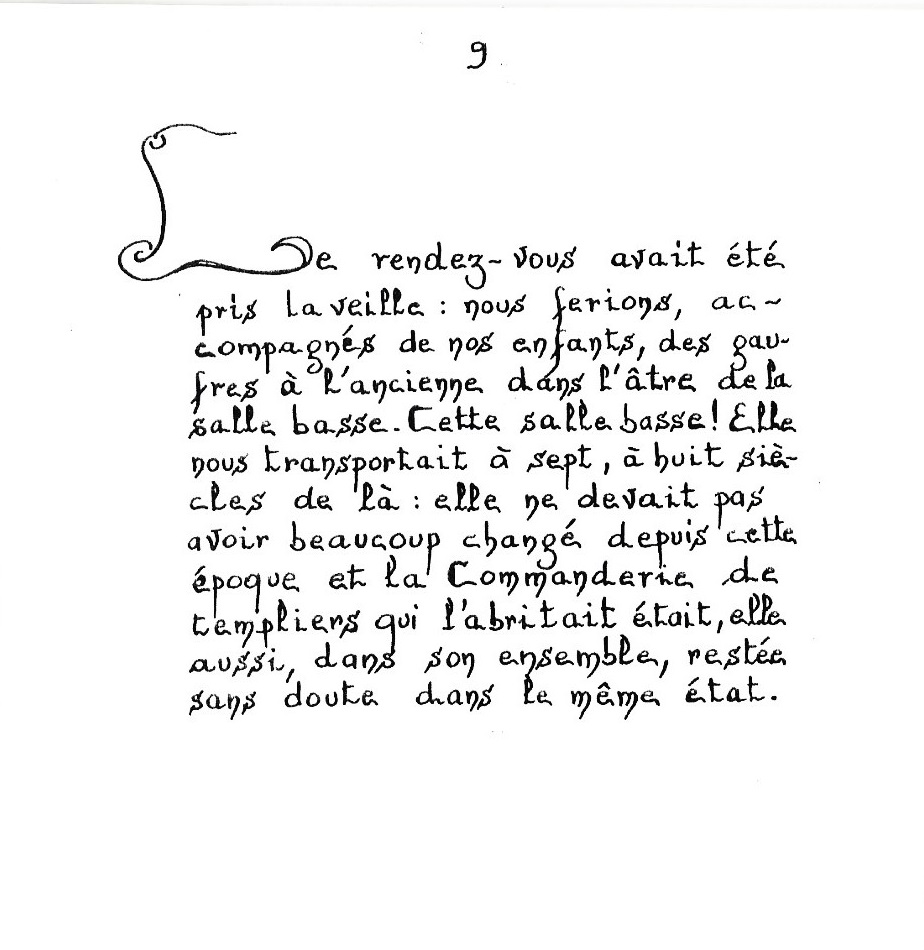 9
Le rendez-vous avait été
pris la veille : nous ferions, ac-
compagnés de nos enfants, des gau-
fres à l'ancienne dans l'âtre de la
salle basse. Cette salle basse ! Elle
nous transportait à sept, à huit siè-
cles de là : elle ne devait pas
avoir beaucoup changé depuis cette
époque et la Commanderie de
templiers qui l'abritait était, elle
aussi, dans son ensemble, restée
sans doute dans le même état.